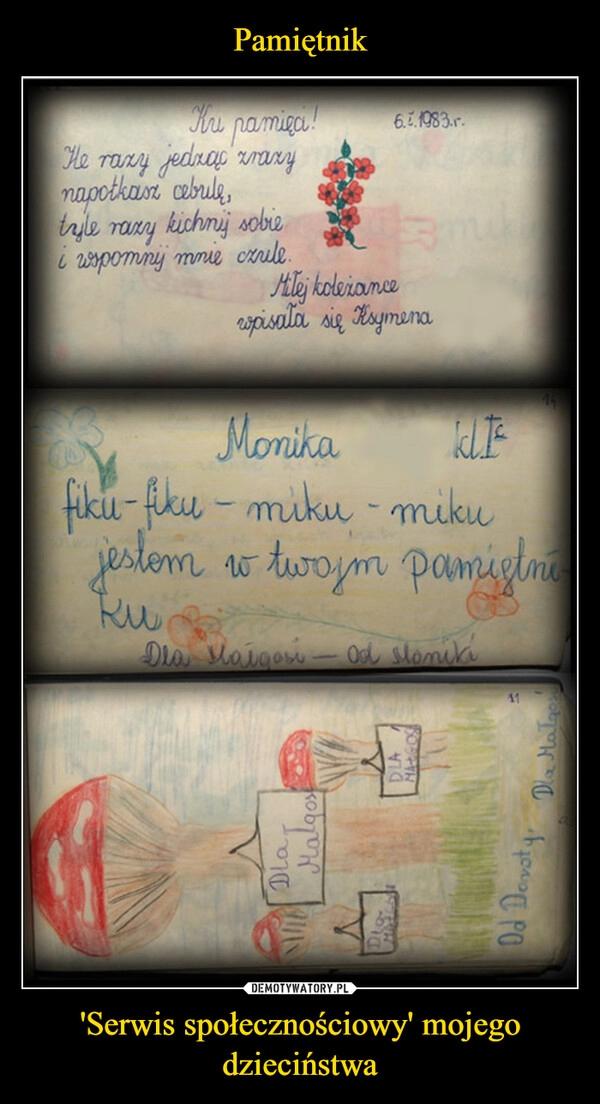 Pamiętnik
Ku pamięci! 6.I.1983.r.
Ile razy jedząc zrazy
napotkasz cebulę,
tyle razy kichnij sobie
i wspomnij mnie czule.
Miłej koleżance
wpisała się Ksymena
14
Monika kl.I c
fiku-fiku - miku - miku
jestem w twojm pamiętni-
ku
Dla Małgosi — Od Moniki
11
DLA
MAŁGOSI
Dla
Małgosi
Dla
Małgosi
Od Doroty. Dla Małgosi
DEMOTYWATORY.PL
'Serwis społecznościowy' mojego
dzieciństwa